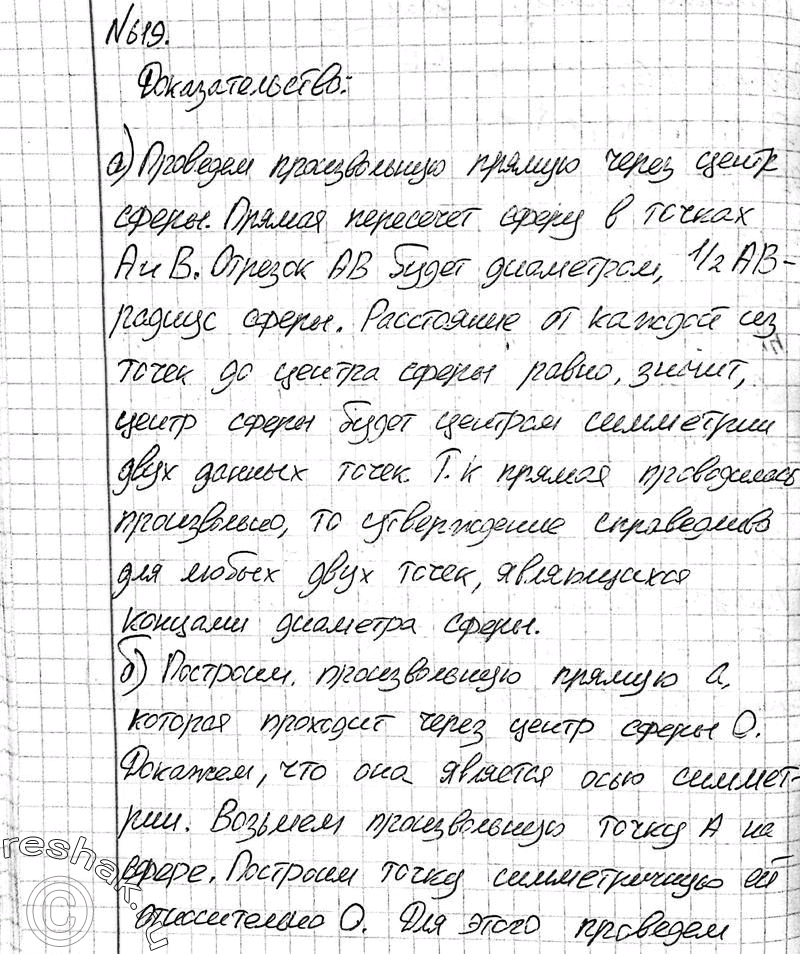 №619.
Доказательство:
а) Проведем произвольную прямую через центр
сферы. Прямая пересечет сферу в точках
А и В. Отрезок АВ будет диаметром, 1/2 АВ-
радиус сферы. Расстояние от каждой из
точек до центра сферы равно, значит,
центр сферы будет центром симметрии
двух данных точек. Т.к прямая проводилась
произвольно, то утверждение справедливо
для любых двух точек, являющихся
концами диаметра сферы.
б) Построим произвольную прямую а,
которая проходит через центр сферы О.
Докажем, что она является осью симмет-
рии. Возьмем произвольную точку А на
сфере. Построим точку симметричную ей
относительно О. Для этого проведем
reshak.ru
©